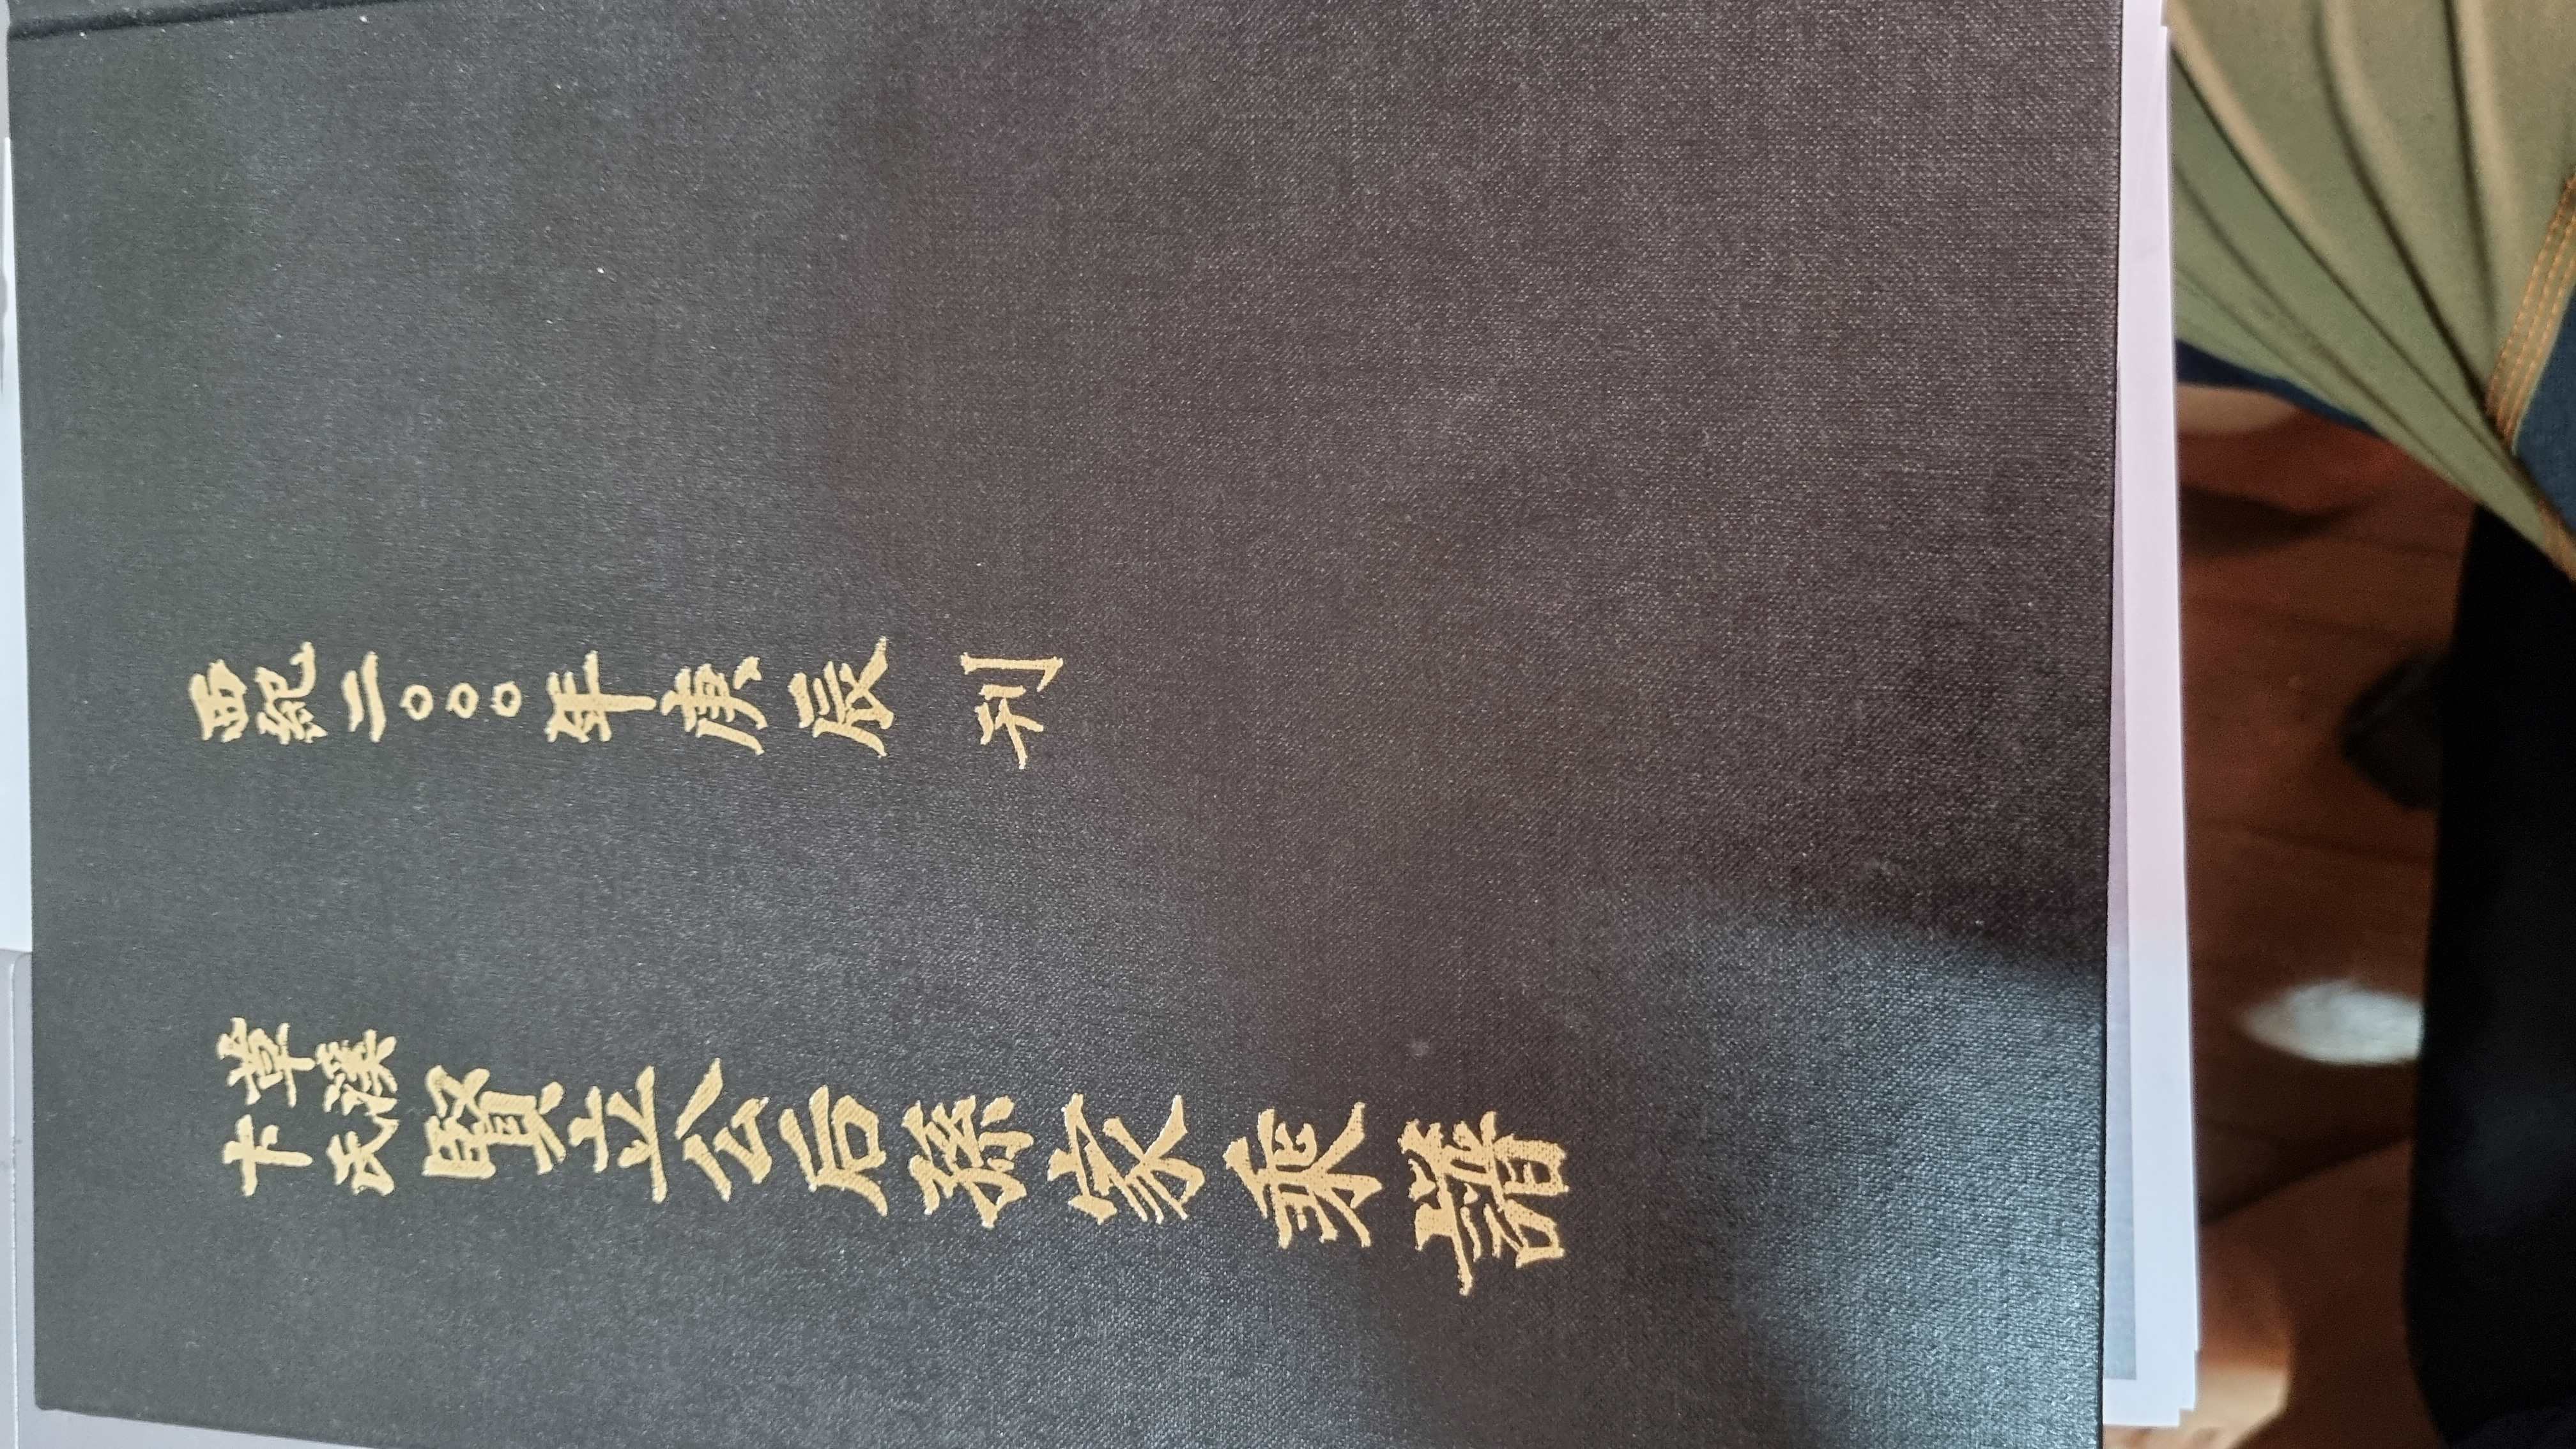 西紀二〇〇〇年庚辰 刊
草溪卞氏賢立公后孫家乘譜